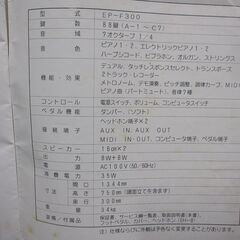 型 式 EP-F300
鍵 盤 88鍵(A-1～C7)
音 域 7オクターブ 1/4
音 色 ピアノ1・2、エレクトリックピアノ1・2
ハープシコード、ビブラホン、オルガン、ストリングス
機能・効果 デュアル、タッチレスポンスセレクト、トランスポーズ
2トラック・レコーダー
メトロノーム、デモ演奏、ピッチ調整、調律カーブ、MIDI
ピアノ曲(パートミュート)、各種音律
コントロール 電源スイッチ、ボリューム、コンピュータスイッチ
ペダル機能
接続端子 ヘッドホン端子×2
AUX IN、AUX OUT
MIDI IN、OUT、コンピュータ端子、ペダル端子
スピーカー 16cm×2
出 力 8W+8W
電 源 AC100V(50/60Hz)
消費電力 35W
間 口 1344mm
高 さ 750mm
奥 行
重 量 34kg
付属品 保証書、サービス網一覧表、取扱説明書(本書)
フットペダル、カバー、ヘッドホン